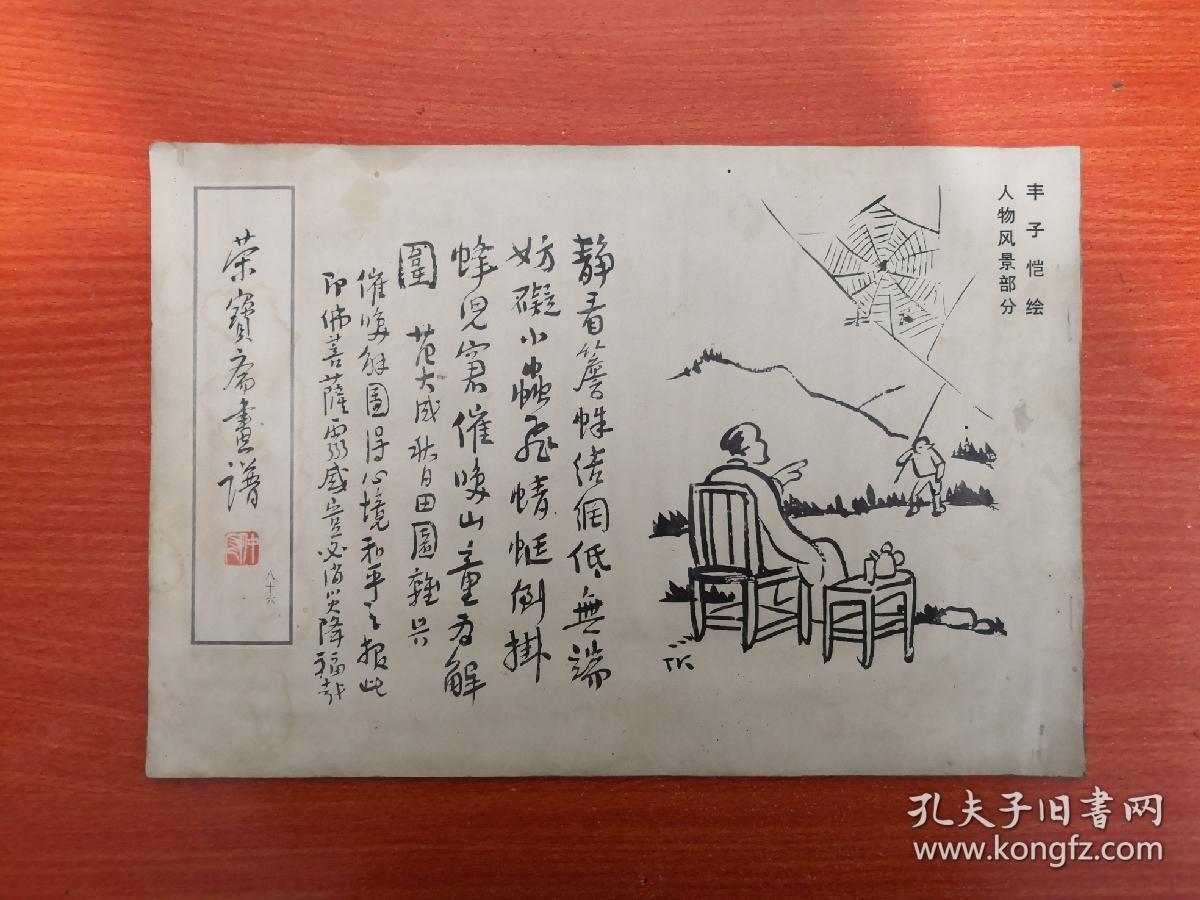 丰子恺绘
人物风景部分
静看簷蛛结網低無端
妨礙小蟲飛蜻蜓倒掛
蜂兒窘催喚山童为解
圍 范大成秋日田園雜兴
催喚解圍得心境和平之報此
即佛菩薩靈感豈必消災降福哉
榮寶齋畫譜
八十六
TK
孔夫子旧书网
www.kongfz.com